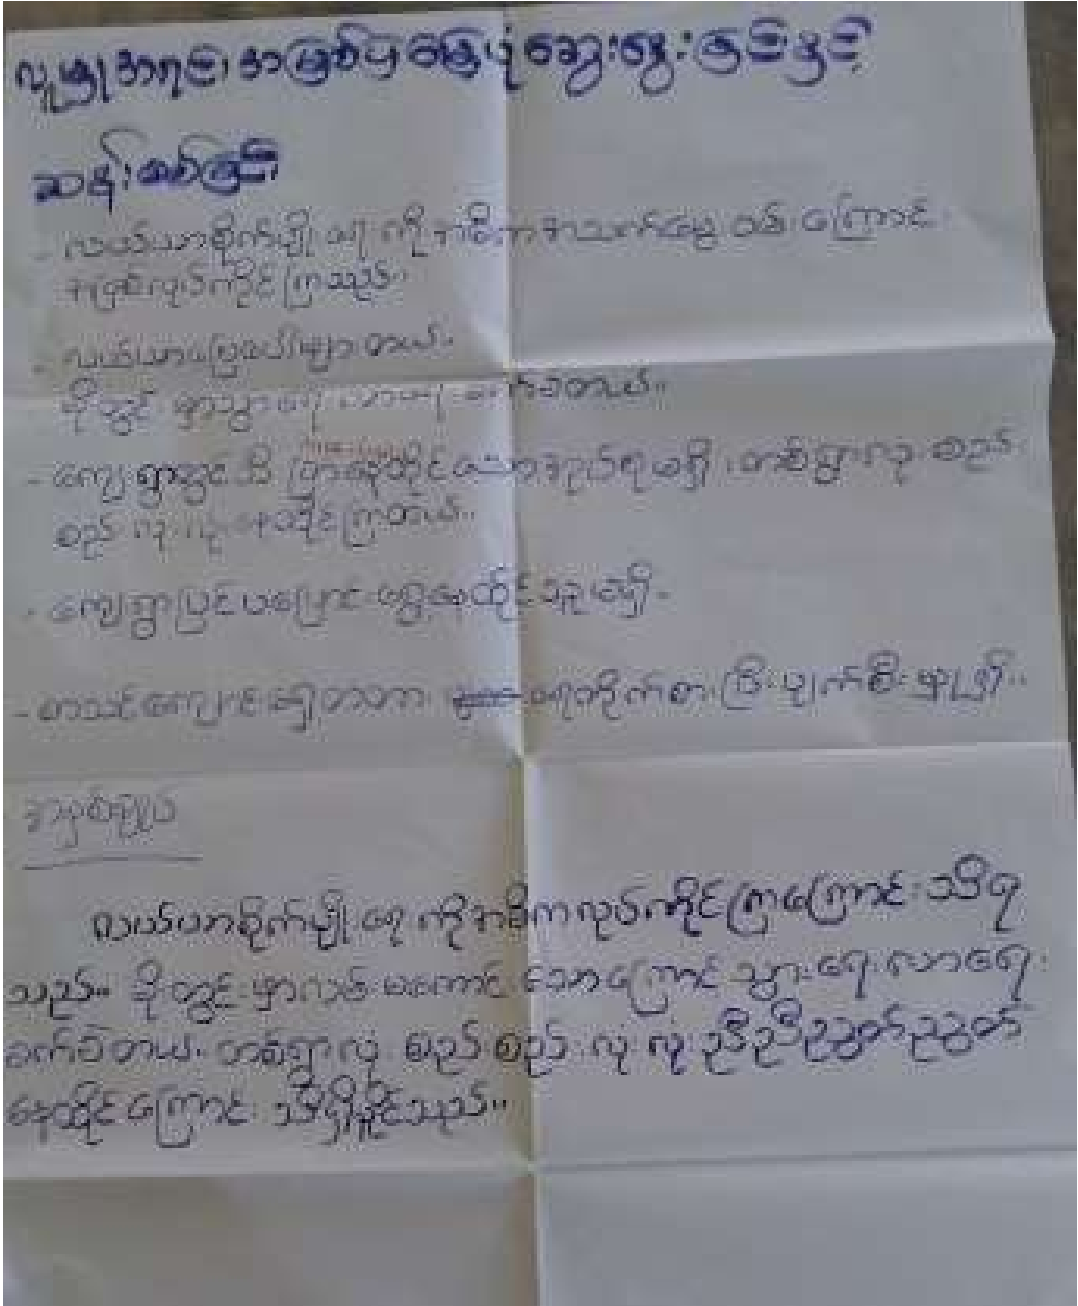 လူမှုအရင်းအမြစ်ပြမြေပုံဆွေးနွေးခြင်းနှင့်
ဆန်းစစ်ခြင်း
- လယ်ယာစိုက်ပျိုးရေးကိုအဓိကအသက်မွေးဝမ်းကြောင်း
အဖြစ်လုပ်ကိုင်ကြသည်။
- လယ်ယာမြေပေါများတယ်။
မိုးတွင်းမှာသွားရေးလာရေးခက်ခဲတယ်။
- ကျေးရွာတွင်းသို့ နေထိုင်သောဧည့်ရေမရှိ၊ တစ်ရွာလုံးစည်း
စည်းလုံးလုံးနေထိုင်ကြတယ်။
- ကျေးရွာပြင်ပပြောင်းရွှေ့နေထိုင်သူမရှိ။
- စာသင်ကျောင်းရှေ့တံတား ရေတိုက်စားပြီးပျက်စီးမှုရှိ။
အနှစ်ချုပ်
လယ်ယာစိုက်ပျိုးရေးကိုအဓိကလုပ်ကိုင်ကြကြောင်းသိရ
သည်။ မိုးတွင်းမှာလမ်းမကောင်းသောကြောင့် သွားရေးလာရေး
ခက်ခဲတယ်။ တစ်ရွာလုံးစည်းစည်းလုံးလုံးညီညီညွတ်ညွတ်
နေထိုင်ကြောင်းသိရှိနိုင်သည်။